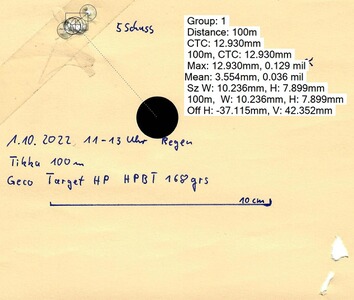 5 Schuss
Group: 1
Distance: 100m
CTC: 12.930mm
100m, CTC: 12.930mm
Max: 12.930mm, 0.129 mil
Mean: 3.554mm, 0.036 mil
Sz W: 10.236mm, H: 7.899mm
100m, W: 10.236mm, H: 7.899mm
Off H: -37.115mm, V: 42.352mm
1.10.2022 11-13 Uhr Regen
Tikka 100m
Geco Target HP HPBT 168grs
10 cm